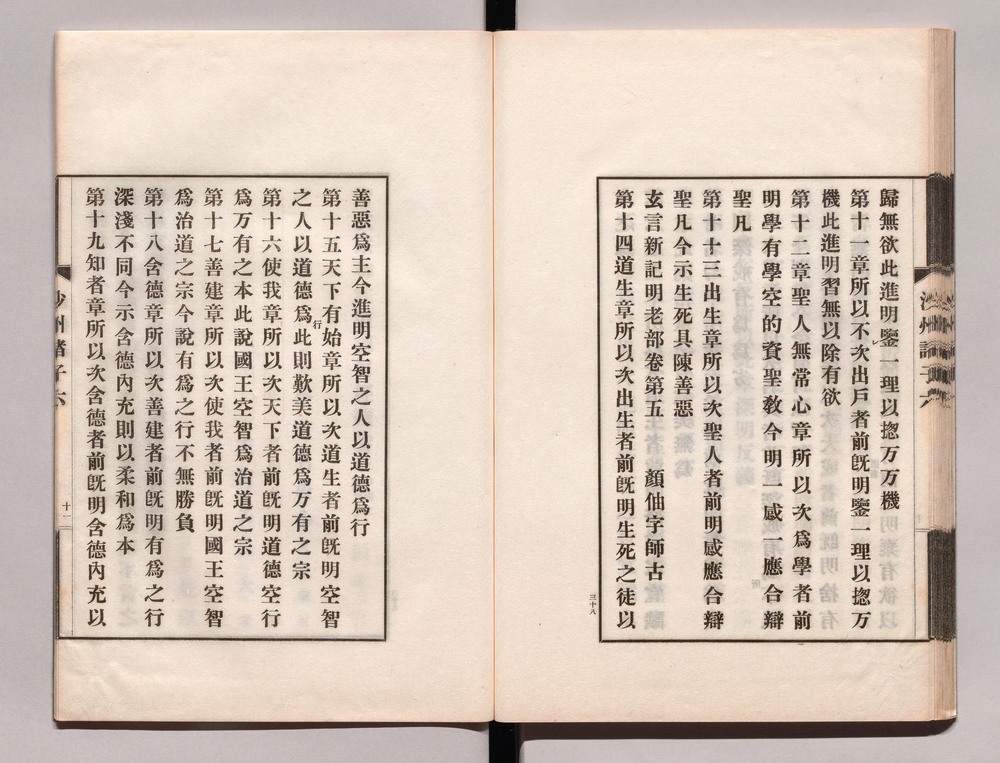 歸無欲此進明鑒一理以揔万万機
第十一章所以不次出戶者前既明鑒一理以揔万
機此進明習無以除有欲
第十二章聖人無常心章所以次為學者前
明學有學空的資聖教今明一感一應合辯
聖凡
第十十三出生章所以次聖人者前明感應合辯
聖凡今示生死具陳善惡
玄言新記明老部卷第五 顏仙字師古
第十四道生章所以次出生者前既明生死之徒以
三十八
沙州諸子六
十一
善惡為主今進明空智之人以道德為行
第十五天下有始章所以次道生者前既明空智
之人以道德為行此則歎美道德為万有之宗
第十六使我章所以次天下者前既明道德空行
為万有之本此說國王空智為治道之宗
第十七善建章所以次使我者前既明國王空智
為治道之宗今說有為之行不無勝負
第十八含德章所以次善建者前既明有為之行
深淺不同今示含德內充則以柔和為本
第十九知者章所以次含德者前既明含德內充以